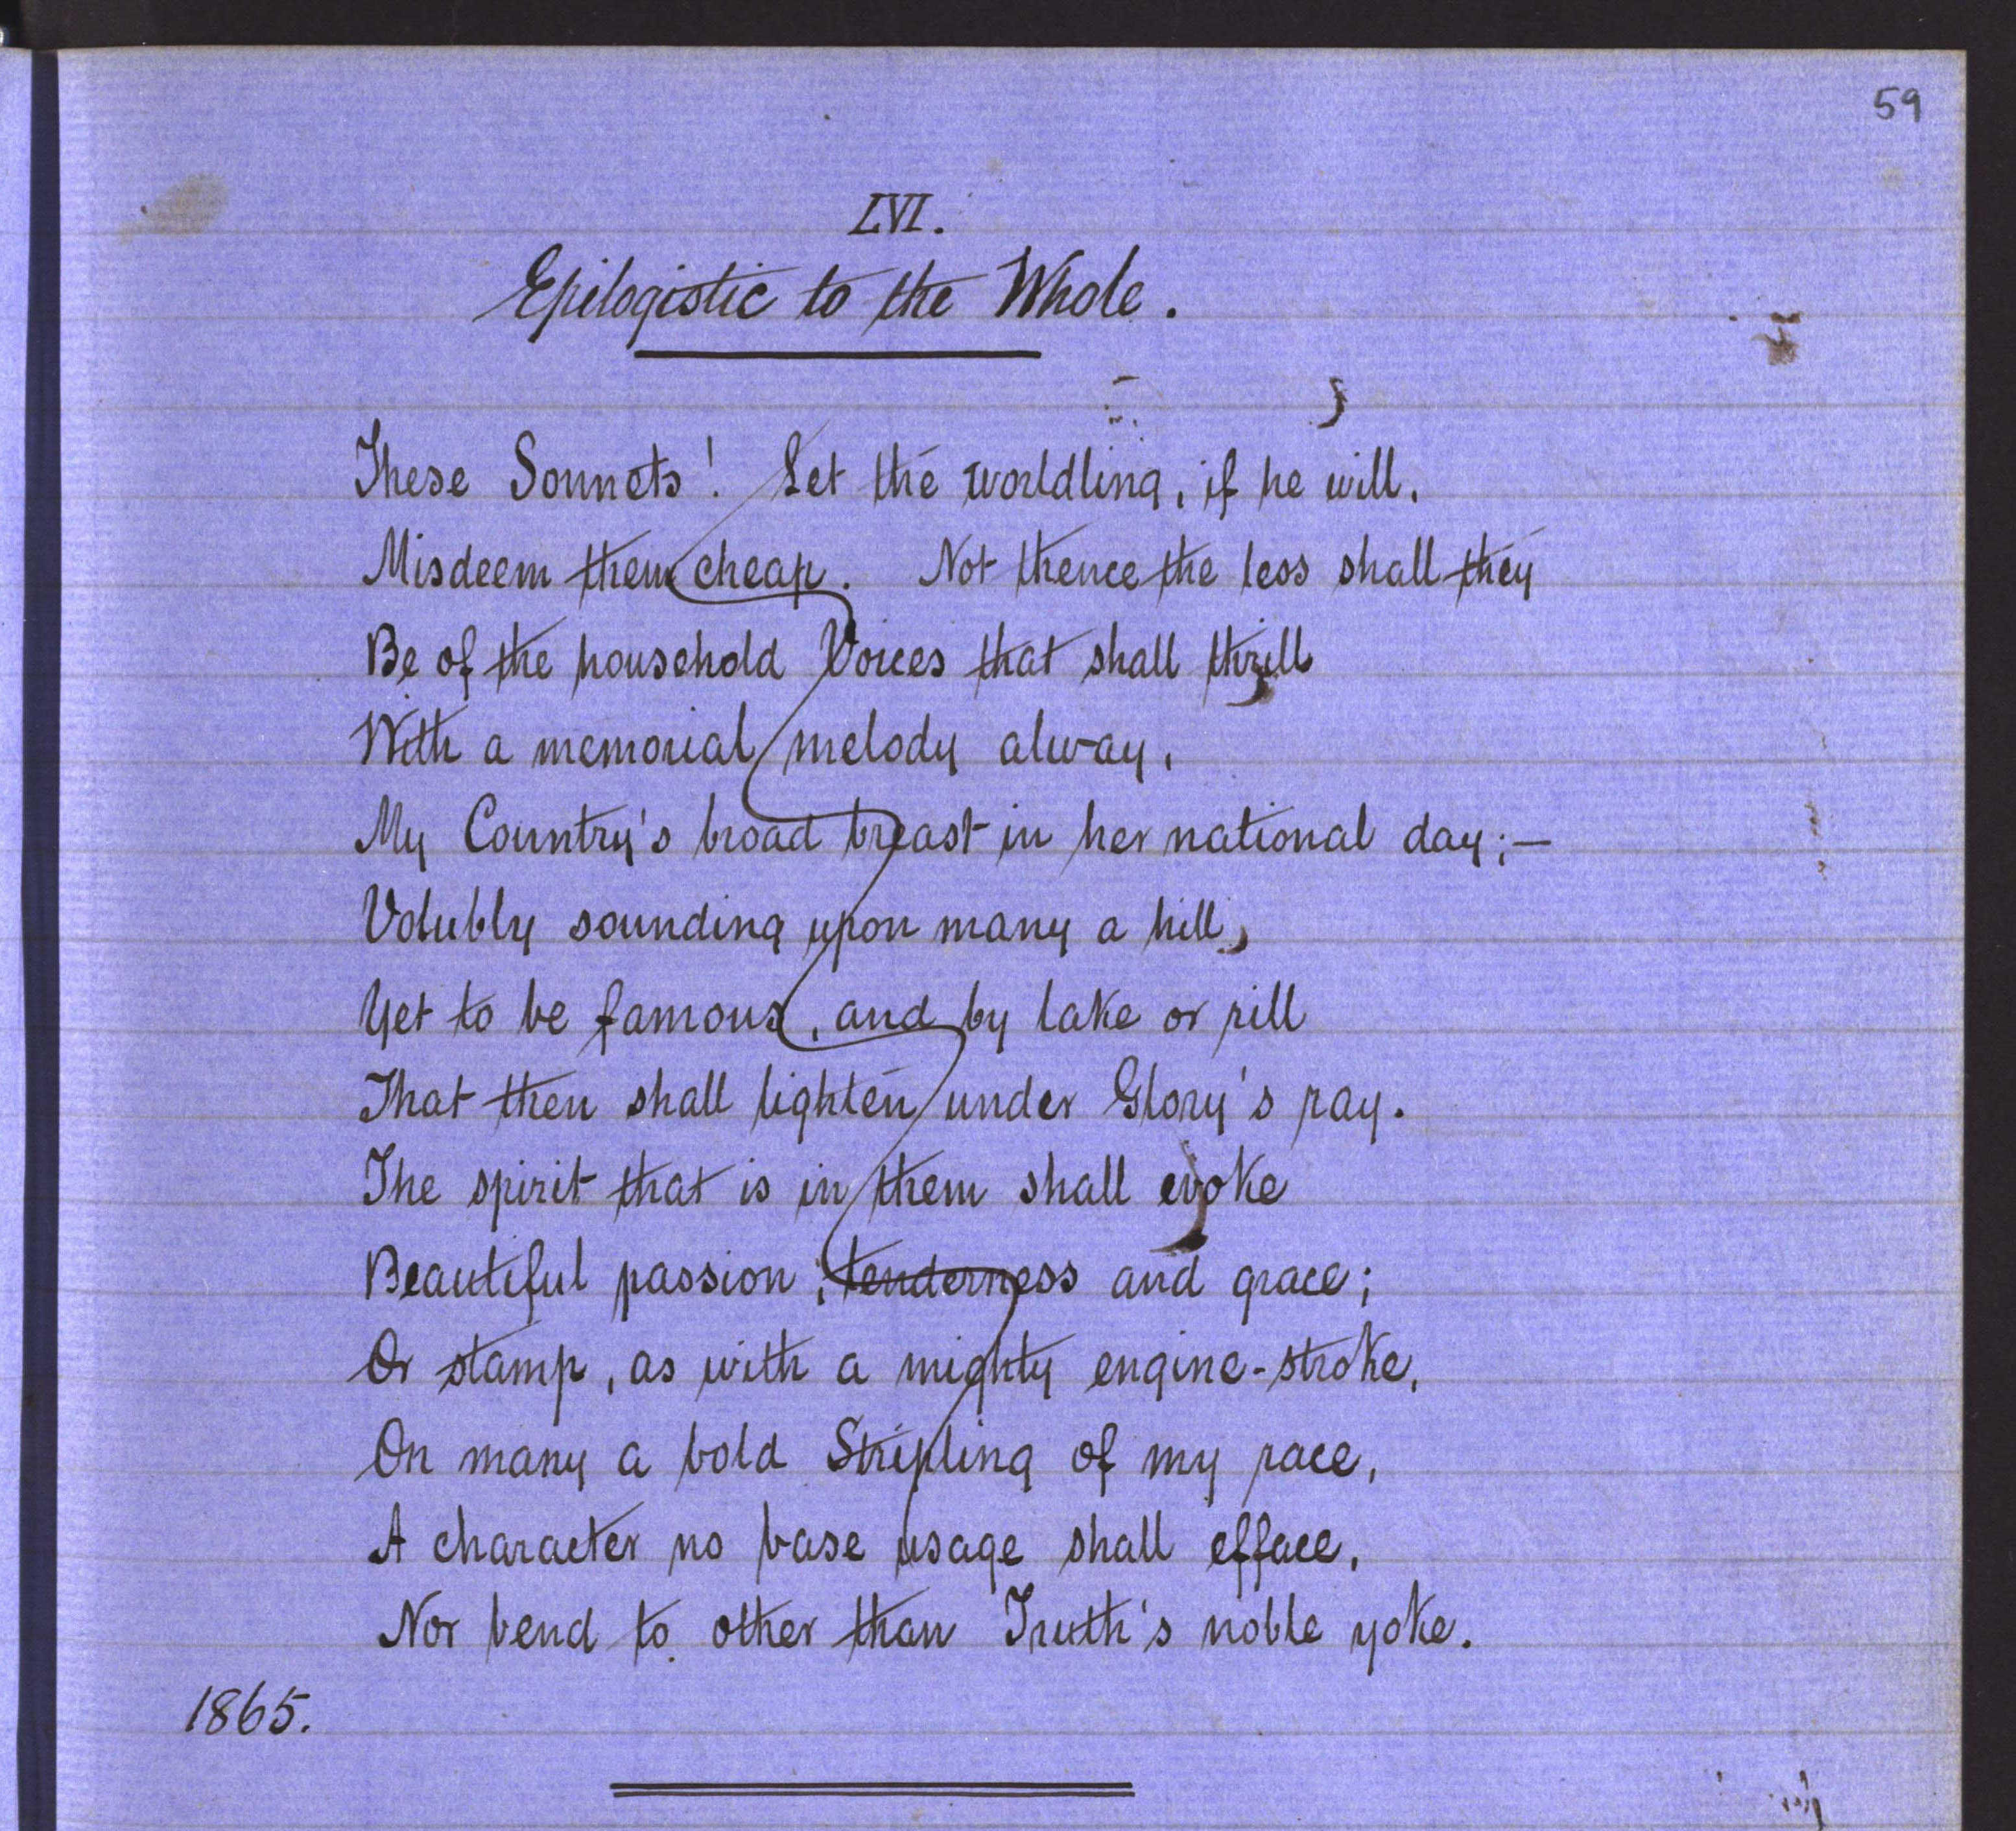 59
LVI.
Epilogistic to the Whole.
These Sonnets! Let the worldling, if he will,
Misdeem them cheap. Not thence the less shall they
Be of the household Voices that shall thrill
With a memorial melody alway,
My Country's broad breast in her national day;—
Volubly sounding upon many a hill,
Yet to be famous, and by lake or rill
That then shall lighten under Glory's ray.
The spirit that is in them shall evoke
Beautiful passion, tenderness and grace;
Or stamp, as with a mighty engine-stroke,
On many a bold Stripling of my race,
A character no base usage shall efface,
Nor bend to other than Truth's noble yoke.
1865.